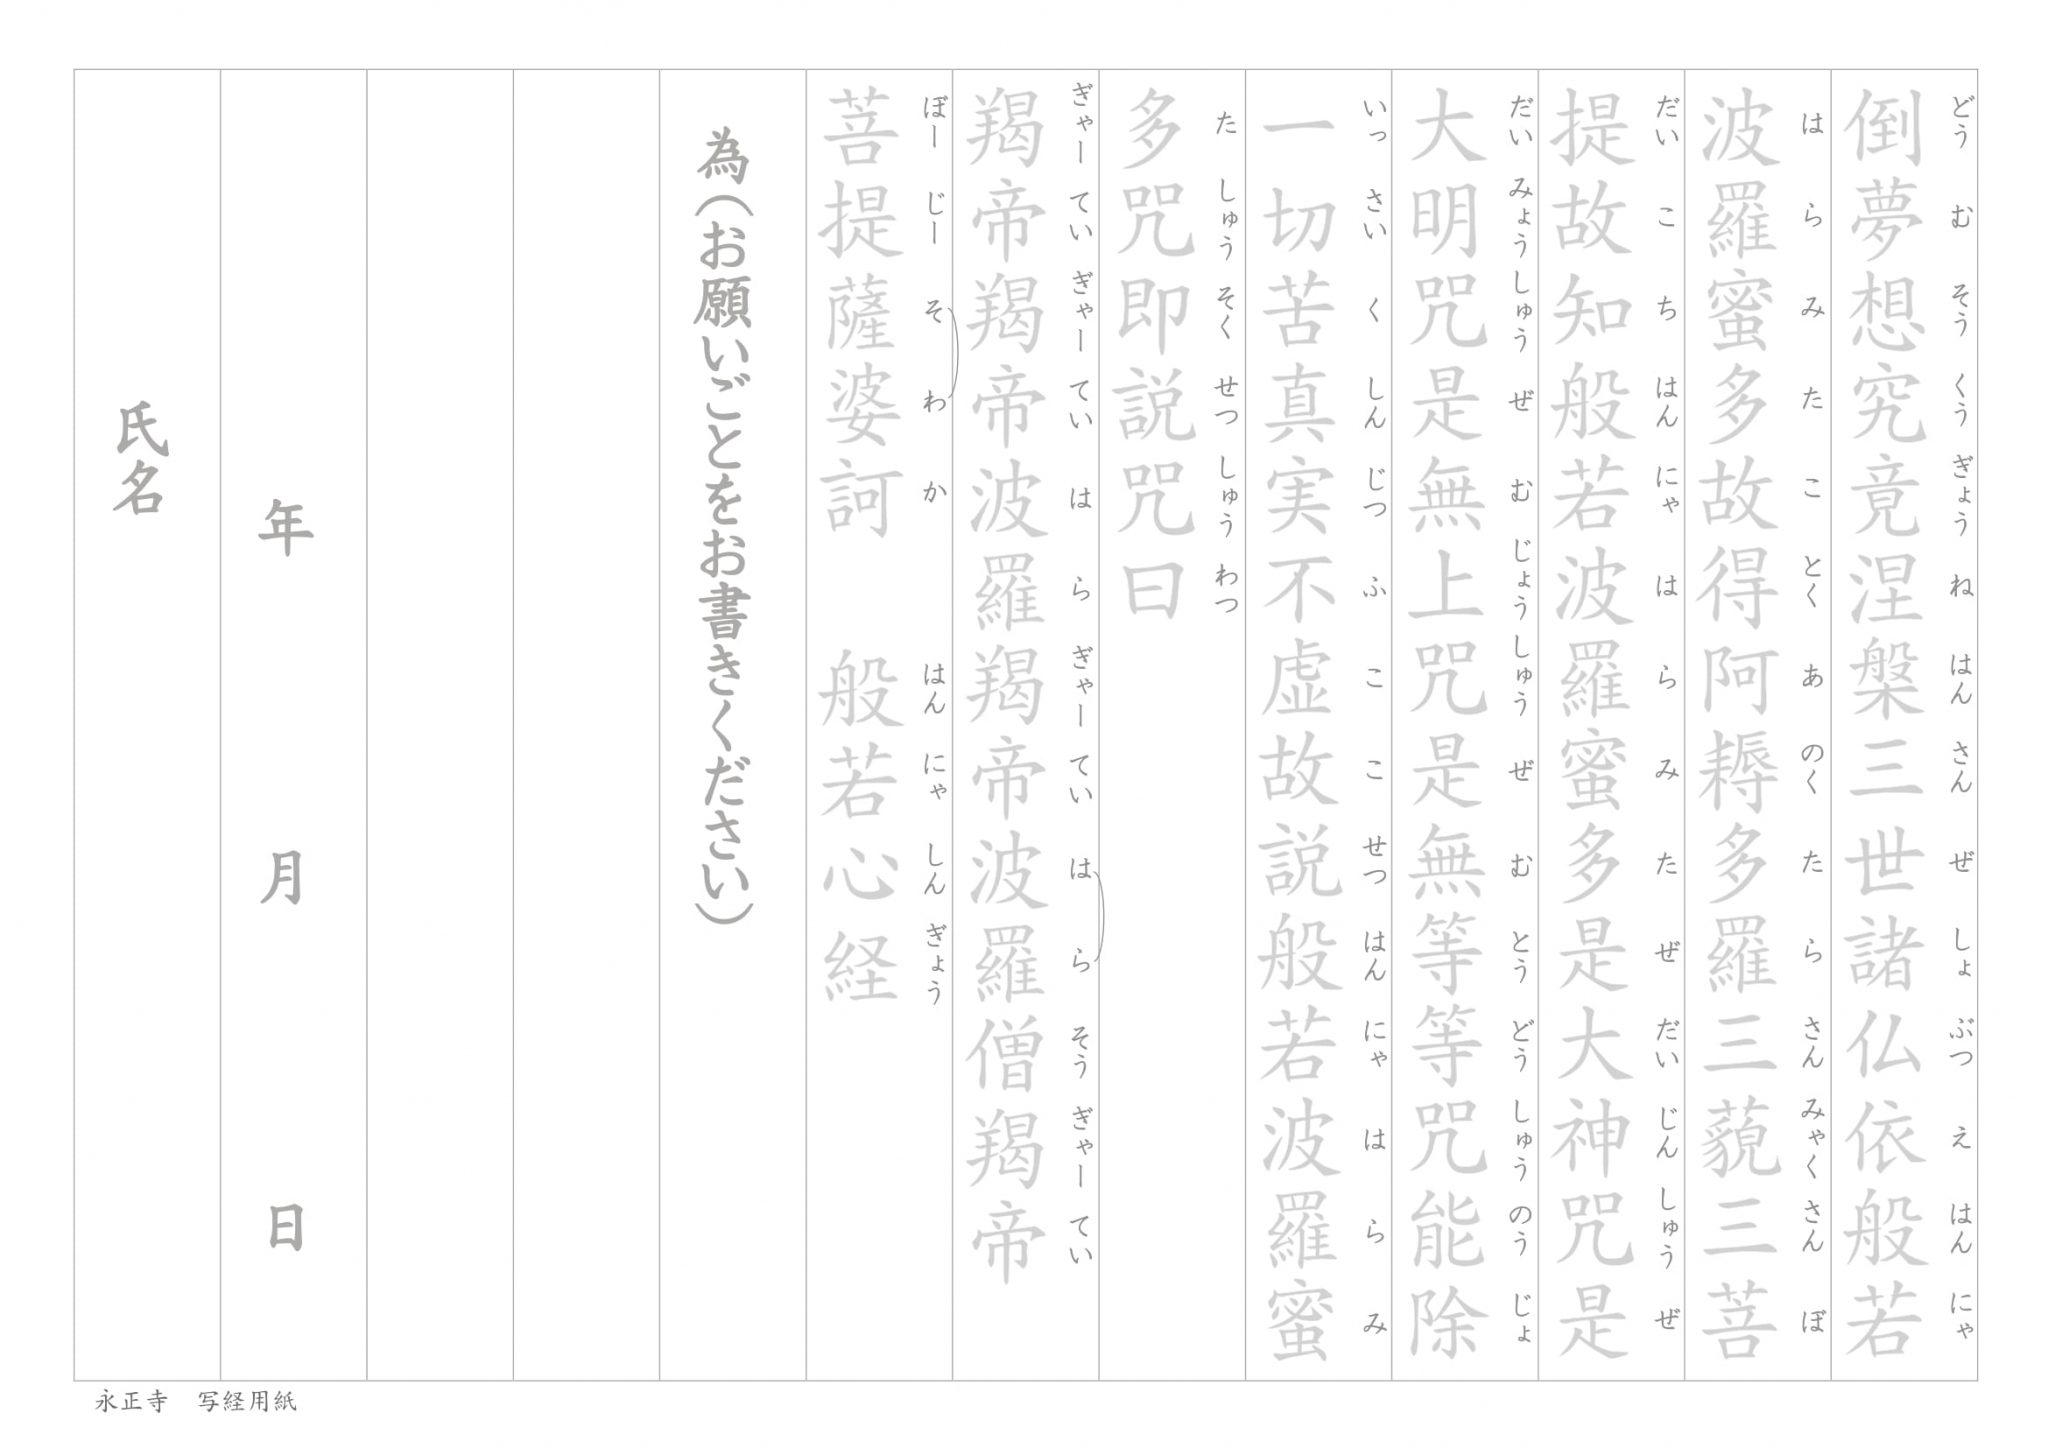 倒夢想究竟涅槃三世諸仏依般若
どうむそうくうぎょうねはんさんぜしょぶつえはんにゃ
波羅蜜多故得阿耨多羅三藐三菩
はらみたことくあのくたらさんみゃくさんぼ
提故知般若波羅蜜多是大神咒是
だいこちはんにゃはらみたぜだいじんしゅうぜ
大明咒是無上咒是無等等咒能除
だいみょうしゅうぜむじょうしゅうぜむとうどうしゅうのうじょ
一切苦真実不虚故説般若波羅蜜
いっさいくしんじつふここせつはんにゃはらみ
多咒即説咒曰
たしゅうそくせつしゅうわつ
羯帝羯帝波羅羯帝波羅僧羯帝
ぎゃーていぎゃーていはらぎゃーていはらそうぎゃーてい
菩提薩婆訶 般若心経
ぼーじーそわか はんにゃしんぎょう
為(お願いごとをお書きください)
年 月 日
氏名
永正寺 写経用紙